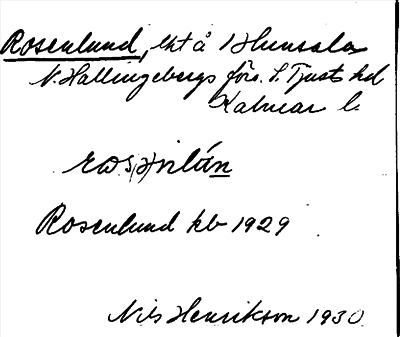 Rosenlund, lht å Hunsala
N. Hallingebergs förs. S. Tjusts hd
Kalmar l.
Rosenlund kb 1929
Nils Henrikson 1930